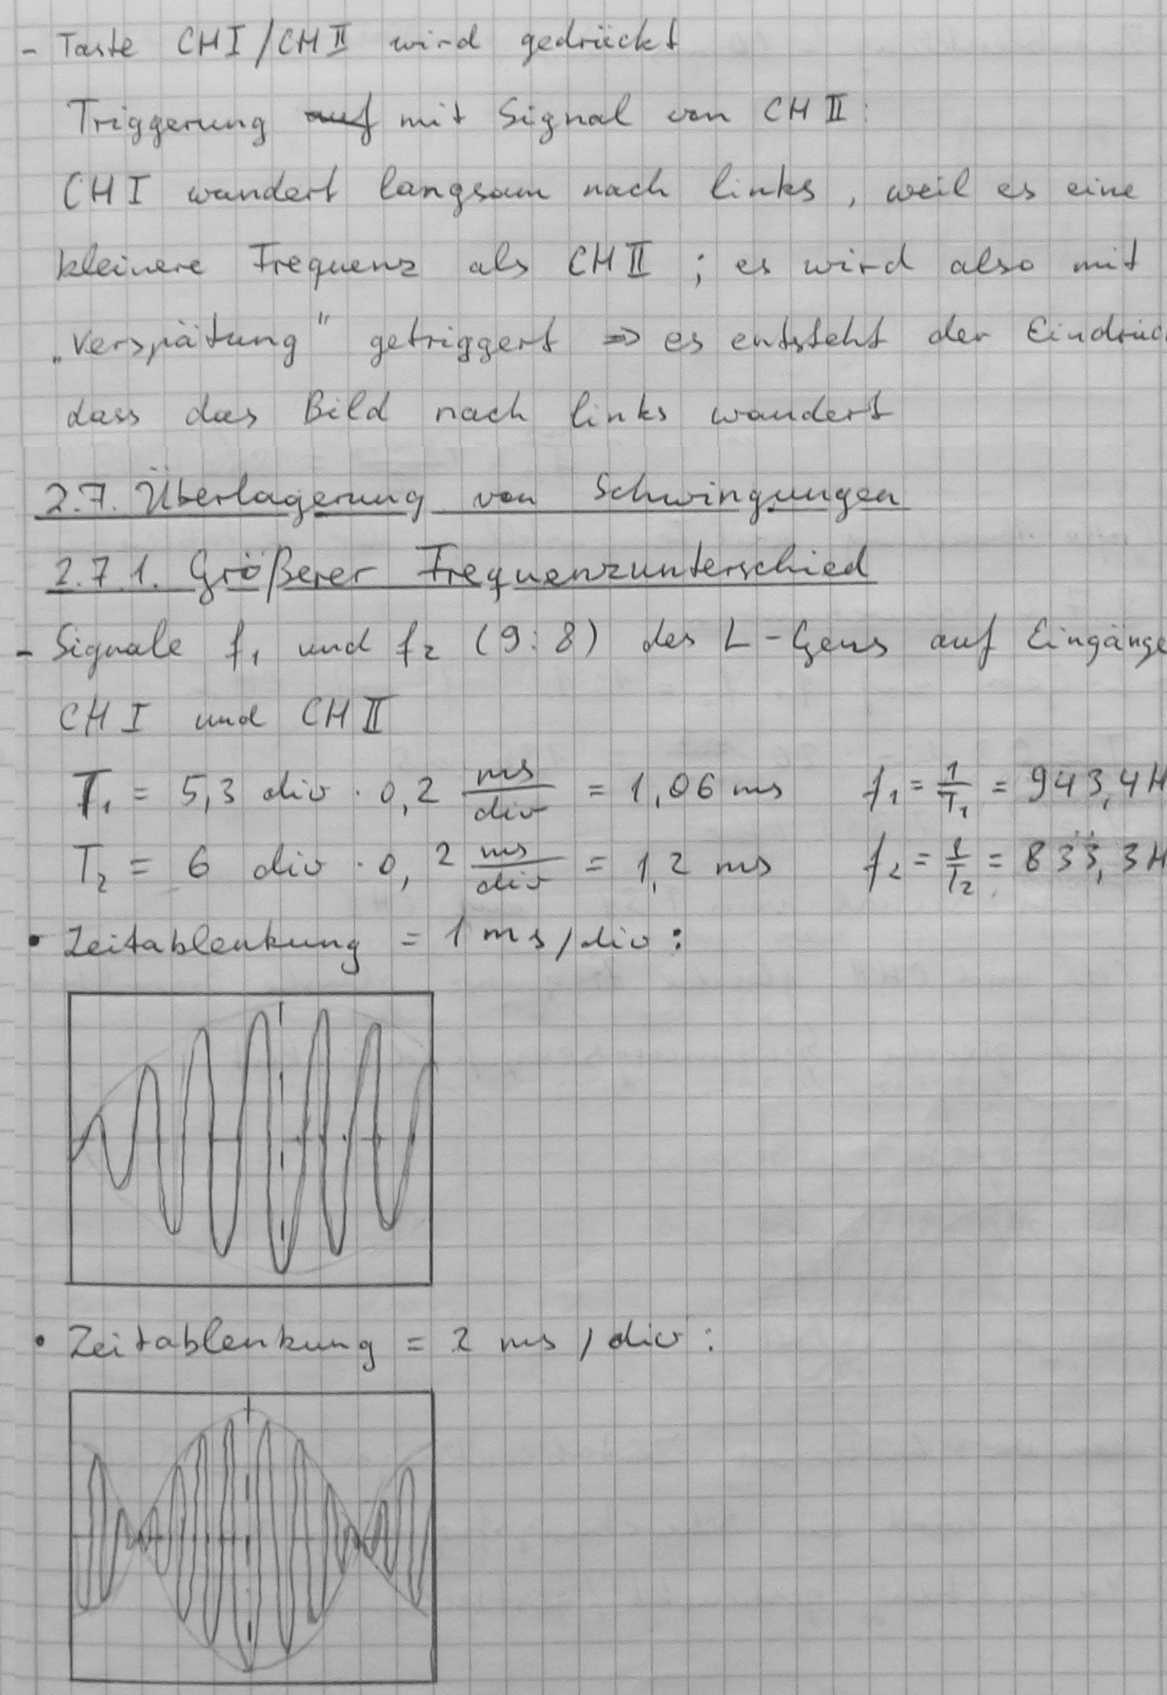 - Taste CH I / CH II wird gedrückt
Triggerung auf mit Signal von CH II:
CH I wandert langsam nach links, weil es eine
kleinere Frequenz als CH II ; es wird also mit
„Verspätung" getriggert ⇒ es entsteht der Eindruc
dass das Bild nach links wandert
2.7. Überlagerung von Schwingungen
2.7.1. Größerer Frequenzunterschied
- Signale f₁ und f₂ (9:8) des L-Gens auf Eingänge
CH I und CH II
T₁ = 5,3 div · 0,2 ms/div = 1,06 ms f₁ = 1/T₁ = 943,4 H
T₂ = 6 div · 0,2 ms/div = 1,2 ms f₂ = 1/T₂ = 833,3 H
• Zeitablenkung = 1 ms/div:
• Zeitablenkung = 2 ms/div: